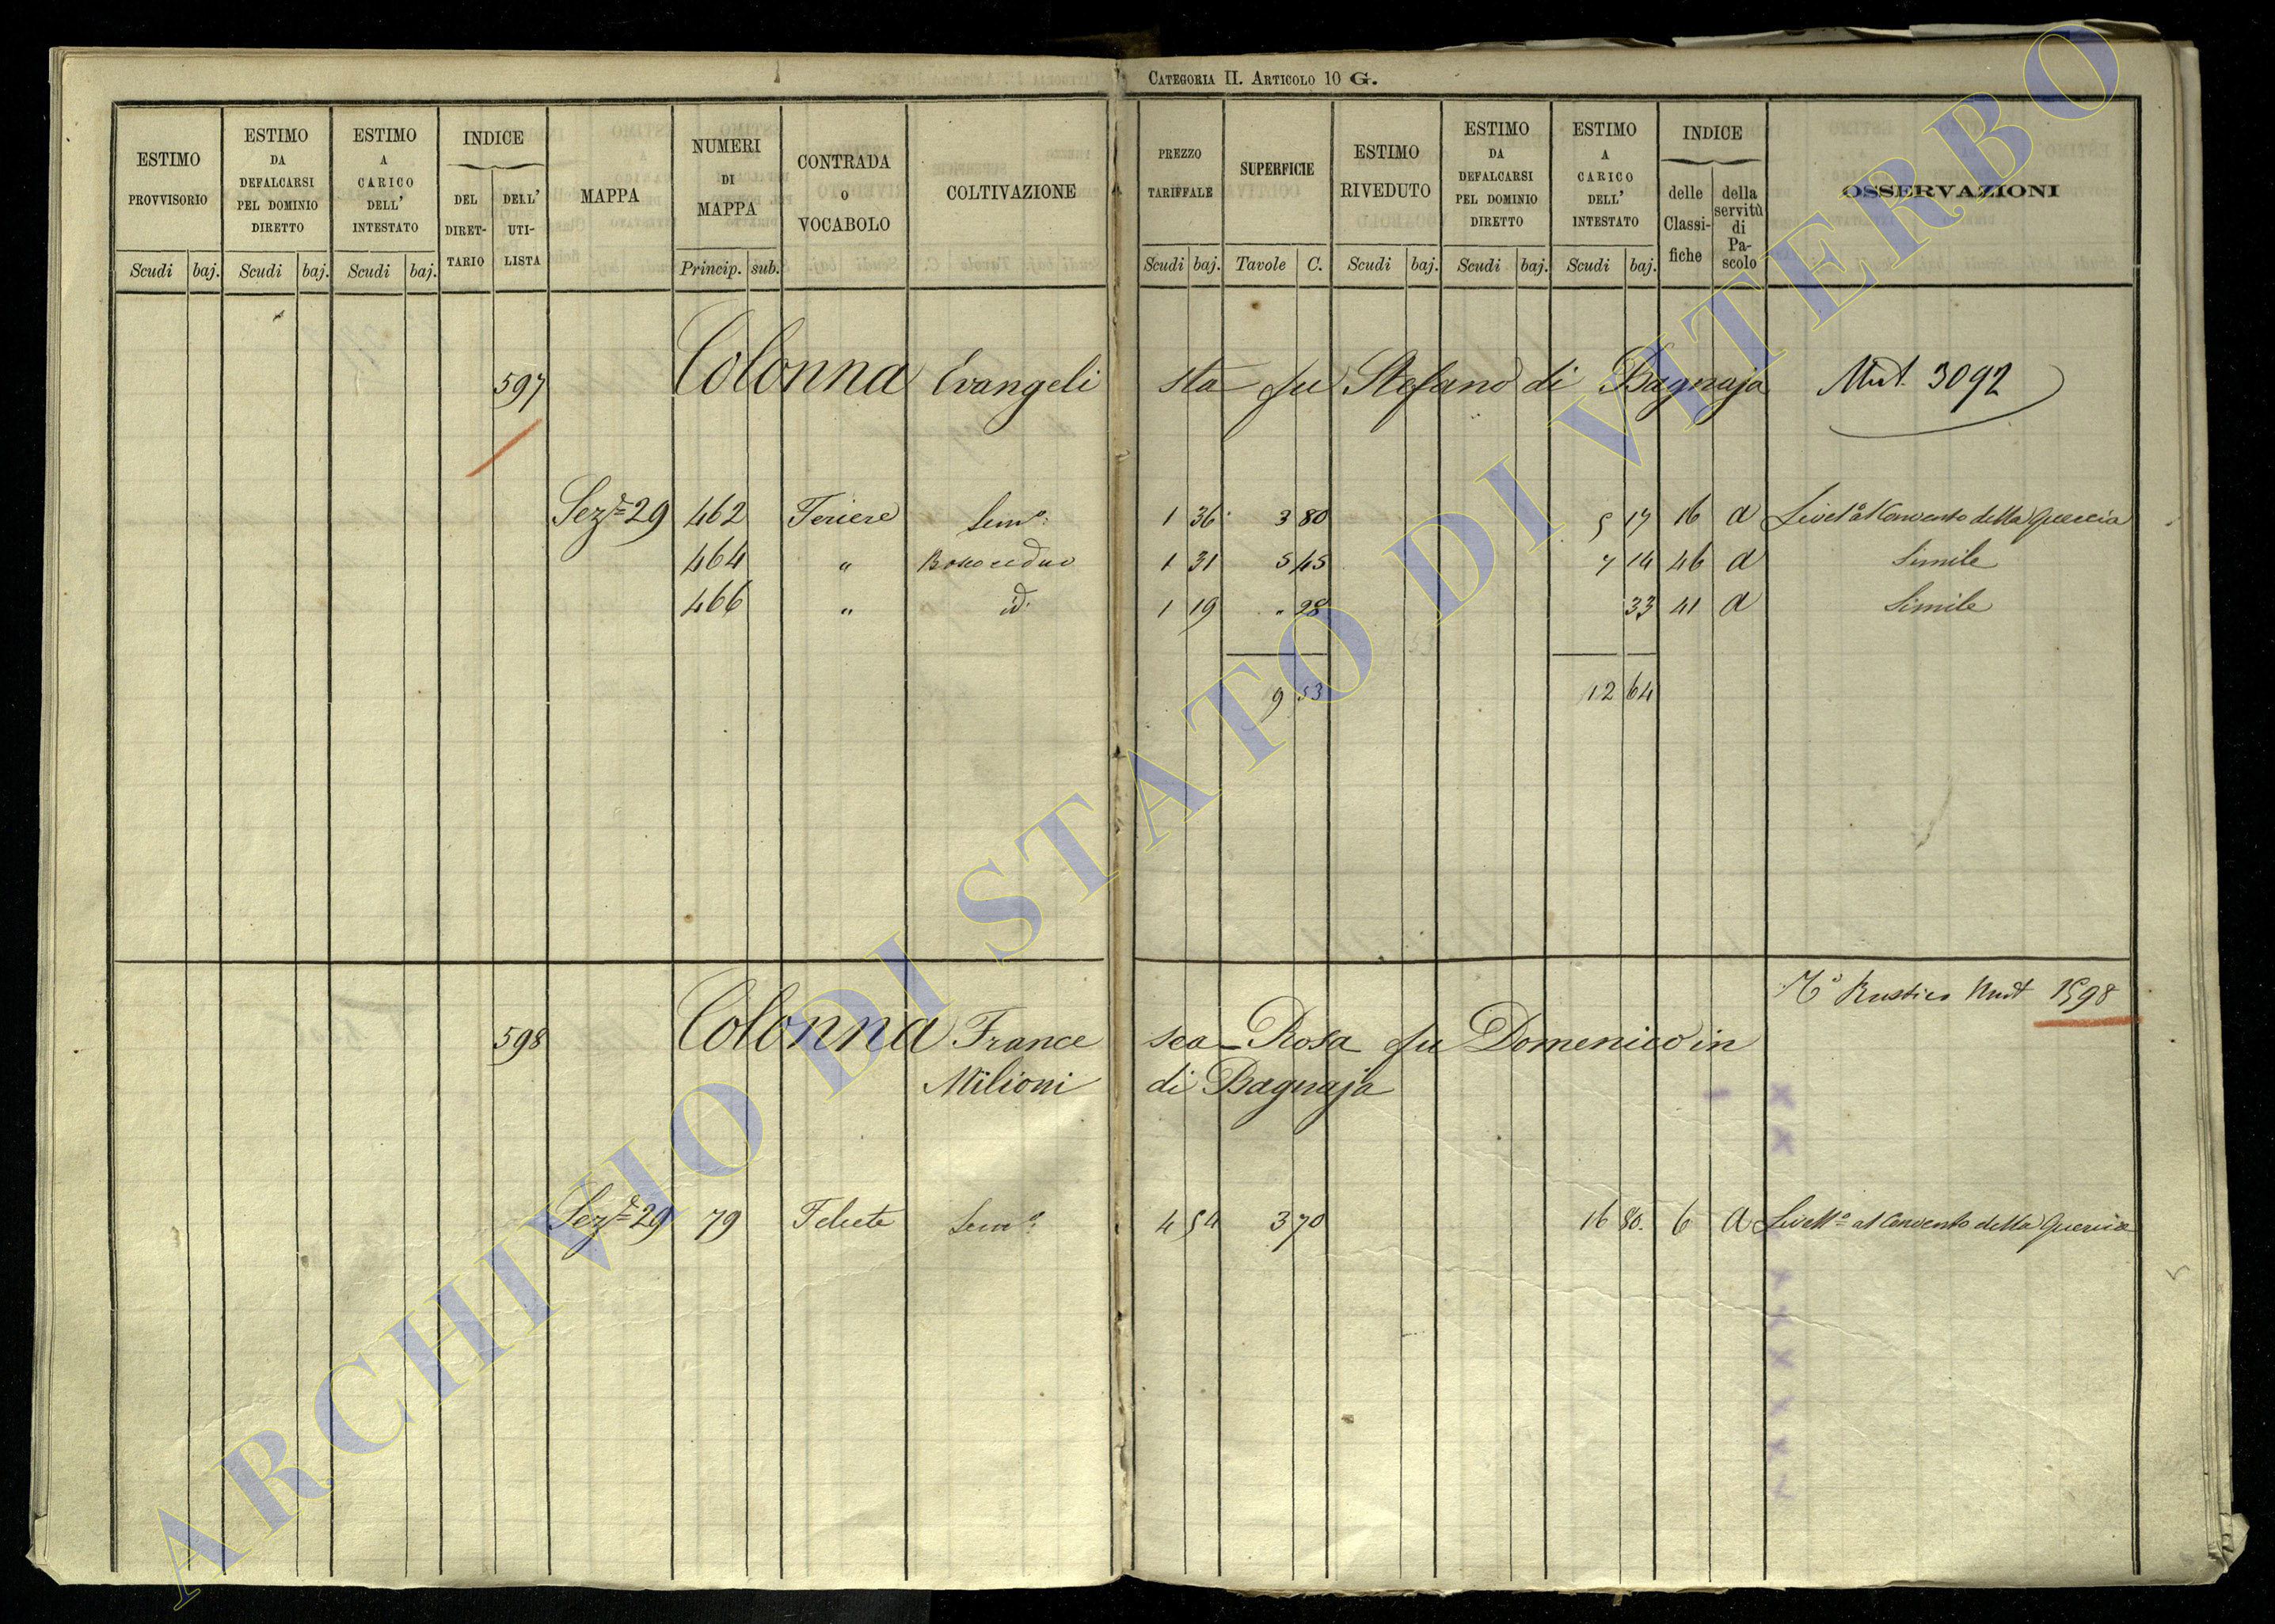 CATEGORIA II. ARTICOLO 10 G.
ESTIMO PROVVISORIO Scudi baj.
ESTIMO DA DEFALCARSI PEL DOMINIO DIRETTO Scudi baj.
ESTIMO A CARICO DELL' INTESTATO Scudi baj.
INDICE DEL DIRET-TARIO DELL' UTI-LISTA
MAPPA
NUMERI DI MAPPA Princip. sub.
CONTRADA O VOCABOLO
COLTIVAZIONE
PREZZO TARIFFALE Scudi baj.
SUPERFICIE Tavole C.
ESTIMO RIVEDUTO Scudi baj.
ESTIMO DA DEFALCARSI PEL DOMINIO DIRETTO Scudi baj.
ESTIMO A CARICO DELL' INTESTATO Scudi baj.
INDICE delle Classi-fiche della servitù di Pa-scolo
OSSERVAZIONI
597 Colonna Evangeli sta fu Stefano di Bagnaja Mut. 3092
Sez.e 29 462 Teriere Sem.o 1 36 3 80 5 17 16 a Livell.o al Convento della Quercia
464 " Bosco ceduo 1 31 5 45 7 14 46 a Simile
466 " id. 1 19 " 28 33 41 a Simile
9 53 12 64
Rustico Mut 1598
598 Colonna France sca Rosa fu Domenico in
Milioni di Bagnaja
Sez.e 29 79 Sem.o 4 54 3 70 16 80. 6 a Livell.o al Convento della Quercia
ARCHIVIO DI STATO DI VITERBO